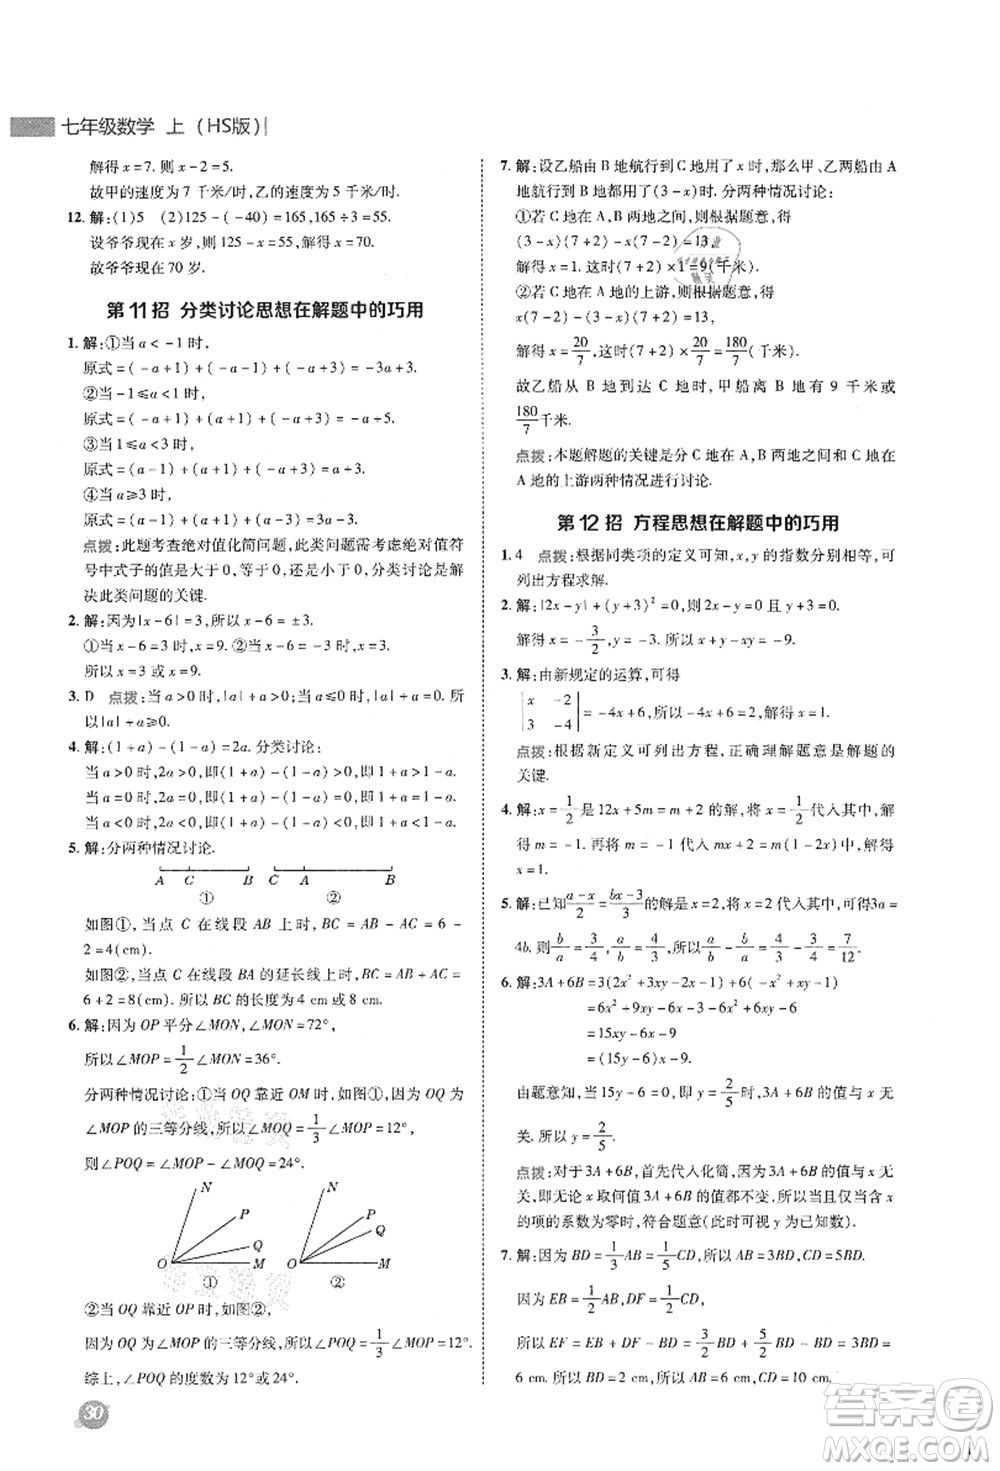 七年级数学 上（HS版）
解得 x=7. 则 x-2=5.
故甲的速度为 7 千米/时,乙的速度为 5 千米/时.
12. 解:(1)5 (2)125-(-40)=165,165÷3=55.
设爷爷现在 x 岁,则 125-x=55,解得 x=70.
故爷爷现在 70 岁.
第 11 招 分类讨论思想在解题中的巧用
1. 解:①当 a<-1 时,
原式=(-a+1)+(-a-1)+(-a+3)=-3a+3.
②当-1≤a<1 时,
原式=(-a+1)+(a+1)+(-a+3)=-a+5.
③当 1≤a<3 时,
原式=(a-1)+(a+1)+(-a+3)=a+3.
④当 a≥3 时,
原式=(a-1)+(a+1)+(a-3)=3a-3.
点拨:此题考查绝对值化简问题,此类问题需对绝对值符
号中式子的值是大于 0,等于 0,还是小于 0 进行讨论是解
决此类问题的关键.
2. 解:因为|x-6|=3,所以 x-6=±3.
①当 x-6=3 时,x=9. ②当 x-6=-3 时,x=3.
所以 x=9 或 x=3.
3. D 点拨:当 a>0 时,|a|+a>0;当 a≤0 时,|a|+a=0,所
以|a|+a≥0.
4. 解:(1+a)-(1-a)=2a. 分类讨论:
当 a>0 时,2a>0,即(1+a)-(1-a)>0,此时 1+a>1-a.
当 a=0 时,2a=0,即(1+a)-(1-a)=0,此时 1+a=1-a.
当 a<0 时,2a<0,即(1+a)-(1-a)<0,此时 1+a<1-a.
5. 解:分两种情况讨论.
A C B C A B
① ②
如图①,当点 C 在线段 AB 上时,BC=AB-AC=6-
2=4(cm).
如图②,当点 C 在线段 BA 的延长线上时,BC=AB+AC=
6+2=8(cm). 所以 BC 的长度为 4 cm 或 8 cm.
6. 解:因为 OP 平分∠MON,∠MON=72°,
所以∠MOP=1/2∠MON=36°.
分两种情况讨论:①当 OQ 靠近 OM 时,如图①,因为 OQ 为
∠MOP 的三等分线,所以∠MOQ=1/3∠MOP=12°,
则∠POQ=∠MOP-∠MOQ=24°.
N P Q O M N P Q O M
① ②
②当 OQ 靠近 OP 时,如图②,
因为 OQ 为∠MOP 的三等分线,所以∠POQ=1/3∠MOP=12°.
综上,∠POQ 的度数为 12°或 24°.
7. 解:设乙船由 B 地航行到 C 地用了 x 时,那么甲、乙两船由 A
地航行到 B 地都用了(3-x)时. 分两种情况讨论:
①若 C 地在 A、B 地之间,则根据题意,得
(3-x)(7+2)-x(7-2)=13,
解得 x=1. 这时(7+2)×1=9(千米).
②若 C 地在 A 地的上游,则根据题意,得
x(7-2)-(3-x)(7+2)=13,
解得 x=20/7,这时(7+2)×20/7=180/7(千米).
故乙船从 B 地到达 C 地时,甲船离 B 地有 9 千米或
180/7千米.
点拨:本题解题的关键是分 C 地在 A、B 地之间和 C 地在
A 地的上游两种情况进行讨论.
第 12 招 方程思想在解题中的巧用
1. 4 点拨:根据同类项的定义可知,x,y 的指数分别相等,可
列出方程求解.
2. 解:|2x-y|+(y+3)²=0,所以 2x-y=0 且 y+3=0,
解得 x=-3/2,y=-3. 所以 x-y-xy=-9.
3. 解:由新规定的运算,可得
|x -2; 3 -4|=-4x+6,所以-4x+6=2,解得 x=1.
点拨:根据新定义可列出方程,正确理解题意是解题的
关键.
4. 解:x=1/2是 12x+5m=m+2 的解,将 x=1/2代入其中,解
得 m=-1. 把 m=-1 代入 mx+2=m(1-2x)中,解得
x=1.
5. 解:已知(a-x)/2=(bx-3)/3的解是 x=2,将 x=2 代入其中,可得3a=
4b. 则b/a=3/4,a/b=4/3. 所以a/b-b/a=4/3-3/4=7/12.
6. 解:3A+6B=3(2x²+3xy-2x-3)+6(-x²+xy-1)
=6x²+9xy-6x-9-6x²+6xy-6
=15xy-6x-9
=(15y-6)x-9.
由题意知,当 15y-6=0,即 y=2/5时,3A+6B 的值与 x 无
关. 所以 y=2/5.
点拨:对于 3A+6B,首先代入化简,因为题中的值与 x 无
关,即无论 x 取何值 3A+6B 的值都不变,所以当仅当含 x
的项的系数为零时,符合题意(此时可视 y 为已知数).
7. 解:因为 BD=1/3AB=1/4CD,所以 AB=3BD,CD=4BD.
因为 EB=1/2AB,DF=1/2CD,
所以 EF=EB+DF-BD=3/2BD+5... 
6 cm. 所以 AB=6 cm,CD=10 cm.
30
答案圈
MXQE.COM